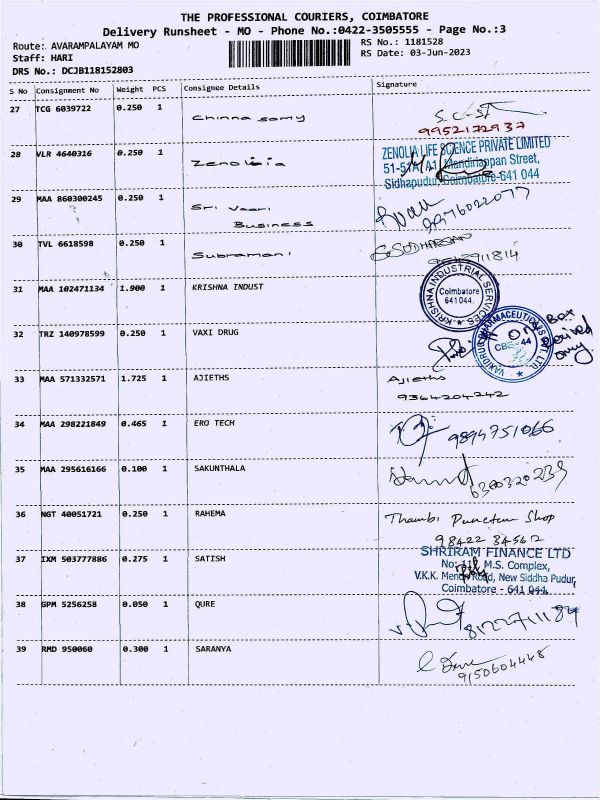 THE PROFESSIONAL COURIERS, COIMBATORE
Delivery Runsheet - MO - Phone No.:0422-3505555 - Page No.:3
Route: AVARAMPALAYAM MO
RS No.: 1181528
Staff: HARI
RS Date: 03-Jun-2023
DRS No.: DCJB118152803
S No Consignment No Weight PCS Consignee Details Signature
27 TCG 6039722 0.250 1 Chinna samy
9952172937
28 VLR 4640316 0.250 1 Zenolia
ZENOLIA LIFE SCIENCE PRIVATE LIMITED
51-51A, A1, Mandiriappan Street,
Sidhapudur, Coimbatore-641 044
29 MAA 860300245 0.250 1 Sri Vaari
Business
9976022077
30 TVL 6618598 0.250 1 Subramani
31 MAA 102471134 1.900 1 KRISHNA INDUST
KRISHNA INDUSTRIAL SERVICES
Coimbatore
641044.
32 TRZ 140978599 0.250 1 VAXI DRUG
CBE-44
Box
only
33 MAA 571332571 1.725 1 AJIETHS Ajieths
9364204242
34 MAA 298221849 0.465 1 ERO TECH 9894751066
35 MAA 295616166 0.100 1 SAKUNTHALA
6380320239
36 NGT 40051721 0.250 1 RAHEMA Thambi Puncture Shop
98422 84562
37 IXM 503777886 0.275 1 SATISH
SHRIRAM FINANCE LTD
M.S. Complex,
V.K.K. Menon Road, New Siddha Pudur,
Coimbatore - 641 044.
38 GPM 5256258 0.050 1 QURE
8122711184
39 RMD 950060 0.300 1 SARANYA
9150604448